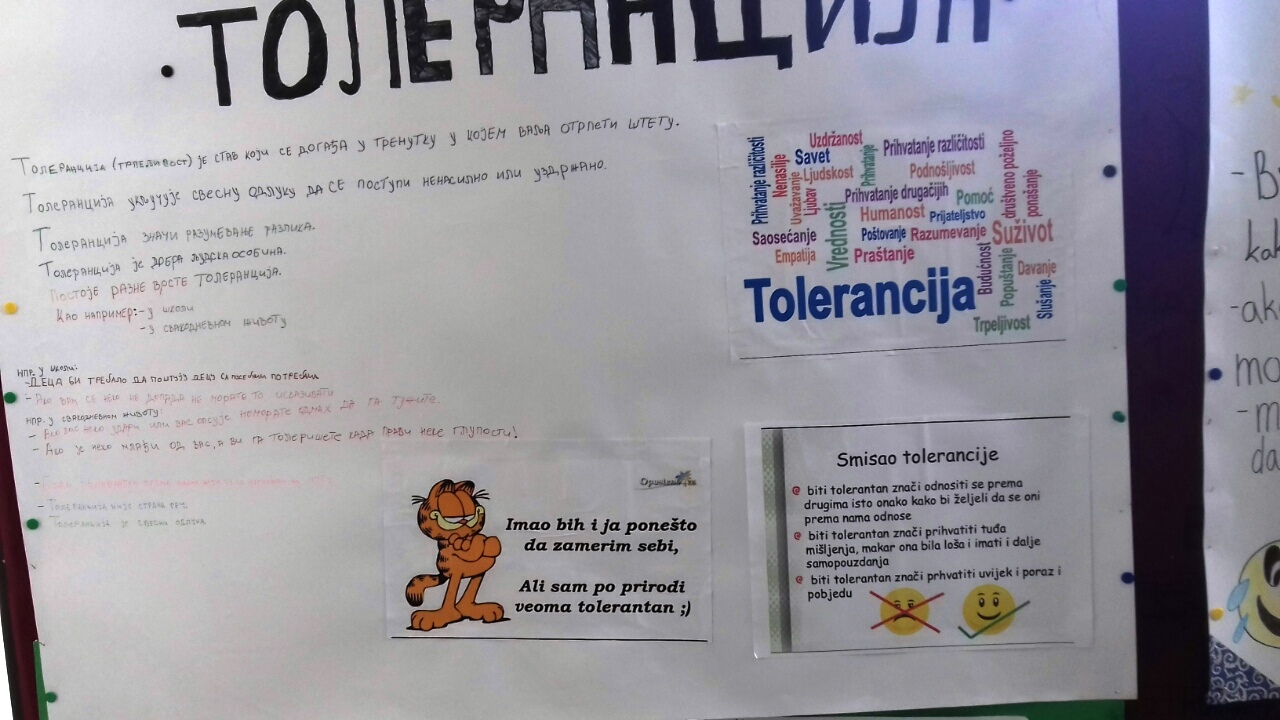 ТОЛЕРАНЦИЈА
ТОЛЕРАНЦИЈА (ТРПЕЛИВОСТ) ЈЕ СТАВ КОЈИ СЕ ДОГАЂА У ТРЕНУТКУ У КОЈЕМ ВАЉА ОТРПЕТИ ШТЕТУ.
ТОЛЕРАНЦИЈА УКЉУЧУЈЕ СВЕСНУ ОДЛУКУ ДА СЕ ПОСТУПИ НЕНАСИЛНО ИЛИ УЗДРЖАНО.
ТОЛЕРАНЦИЈА ЗНАЧИ РАЗУМЕВАЊЕ РАЗЛИКА.
ТОЛЕРАНЦИЈА ЈЕ ДОБРА ЉУДСКА ОСОБИНА.
ПОСТОЈЕ РАЗНЕ ВРСТЕ ТОЛЕРАНЦИЈА.
КАО НАПРИМЕР:-У ШКОЛИ
-У СВАКОДНЕВНОМ ЖИВОТУ
НПР. У ШКОЛИ:
-ДЕЦА БИ ТРЕБАЛО ДА ПОШТУЈУ ДЕЦУ СА ПОСЕБНИМ ПОТРЕБАМА
- АКО ВАМ СЕ НЕКО НЕ ДОПАДА НЕ МОРАТЕ ТО ИСКАЗИВАТИ
НПР. У СВАКОДНЕВНОМ ЖИВОТУ:
- АКО ВАС НЕКО УДАРИ ИЛИ ВАС ОПСУЈЕ НЕМОРАТЕ ОДМАХ ДА ГА ТУЖИТЕ.
- АКО ЈЕ НЕКО МЛАЂИ ОД ВАС, А ВИ ГА ТОЛЕРИШЕТЕ КАДА ПРАВИ НЕКЕ ГЛУПОСТИ!
- ТОЛЕРАНЦИЈА НИЈЕ СТРАНА РЕЧ.
- ТОЛЕРАНЦИЈА ЈЕ СВЕСНА ОДЛУКА
Prihvatanje različitosti
Nenasilje
Uzdržanost
Savet
Uvažavanje
Ljudskost
Ljubav
Prihvatanje
Prihvatanje različitosti
Podnošljivost
društveno poželjno
ponašanje
Prihvatanje drugačijih
Pomoć
Vrednosti
Humanost
Prijateljstvo
Saosećanje
Poštovanje
Razumevanje
Suživot
Empatija
Praštanje
Budućnost
Popuštanje
Davanje
Slušanje
Tolerancija
Trpeljivost
Imao bih i ja ponešto
da zamerim sebi,
Ali sam po prirodi
veoma tolerantan ;)
Smisao tolerancije
@ biti tolerantan znači odnositi se prema
drugima isto onako kako bi željeli da se oni
prema nama odnose
@ biti tolerantan znači prihvatiti tuđa
mišljenja, makar ona bila loša i imati i dalje
samopouzdanja
@ biti tolerantan znači prhvatiti uvijek i poraz i
pobjedu